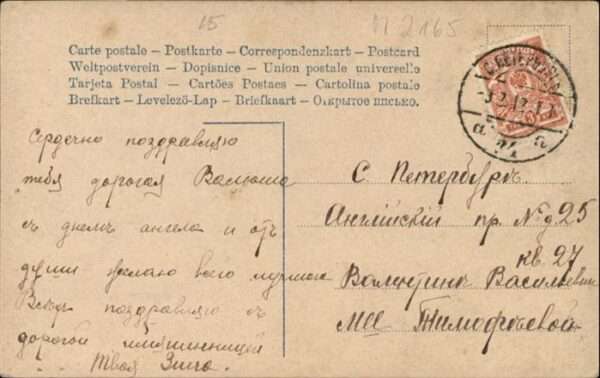 15
П 2165
Carte postale – Postkarte – Correspondenzkart – Postcard
Weltpostverein – Dopisnice – Union postale universelle
Tarjeta Postal – Cartões Postaes – Cartolina postale
Brefkart – Levelező-Lap – Briefkaart – Открытое письмо.
С.ПЕТЕРБУРГЪ
Сердечно поздравляю
тебя дорогая Валюша
съ днемъ ангела и отъ
души желаю всего лучшаго
поздравляю съ
дорогой имянинницей
Твоя Зина.
С. Петербургъ.
Англійскій пр. № д 25
кв. 27
Валентина Васильевна
М-lle Тимофѣевой